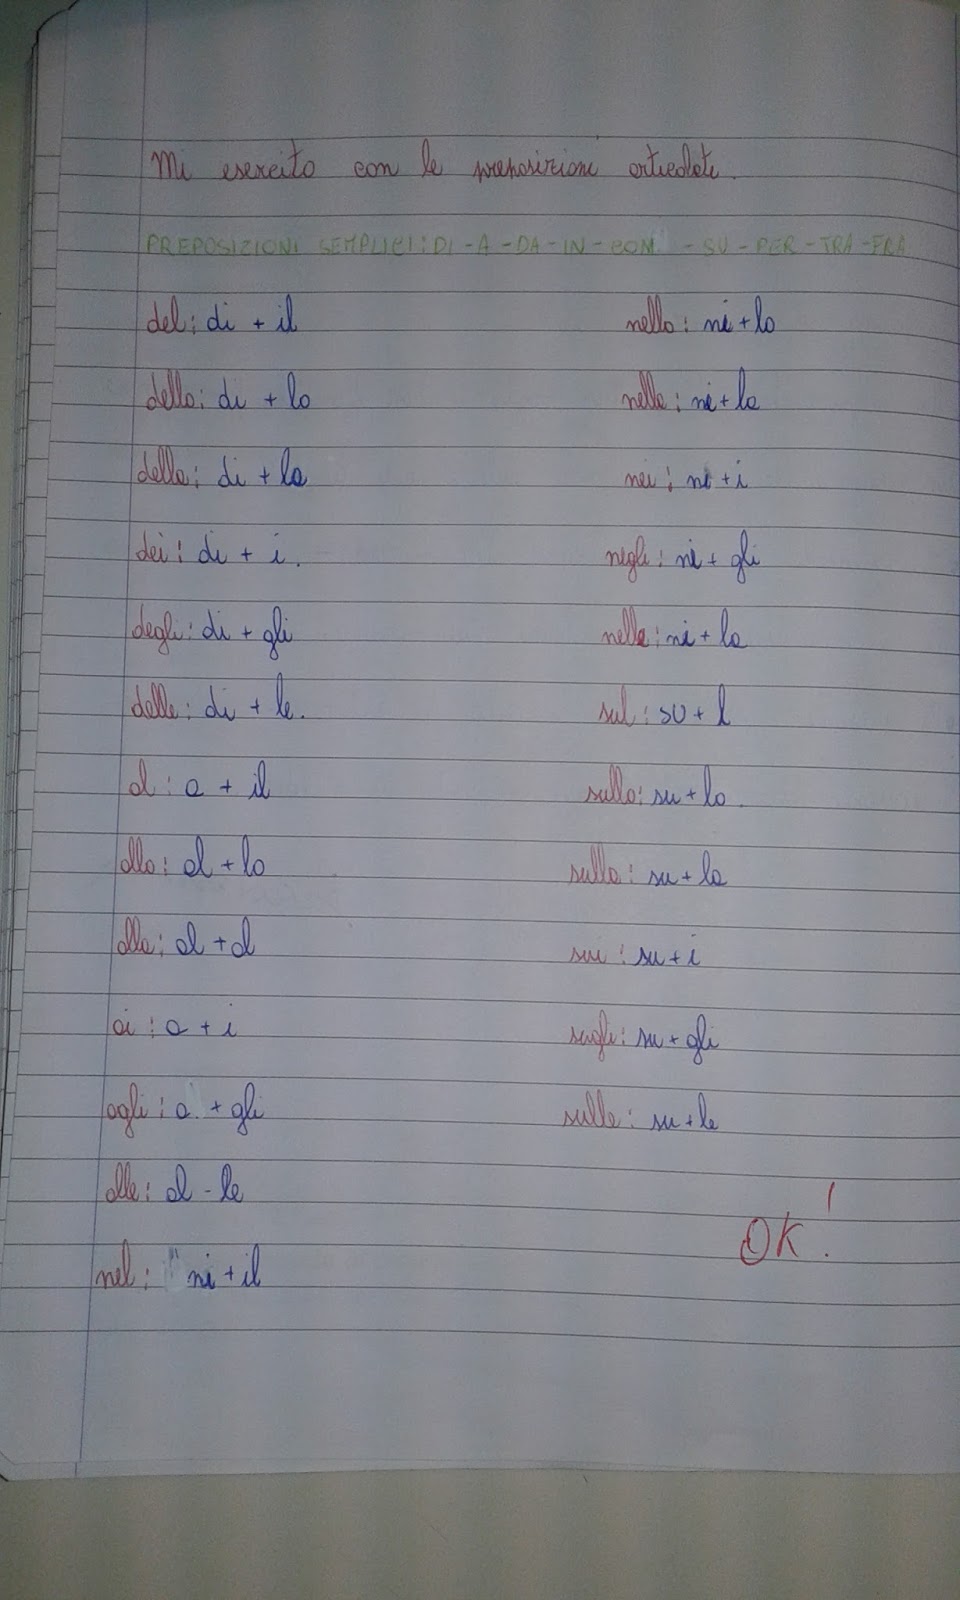 Mi esercito con le preposizioni articolate.
PREPOSIZIONI SEMPLICI: DI - A - DA - IN - COM - SU - PER - TRA - FRA
del: di + il
dello: di + lo
della: di + la
dei: di + i.
degli: di + gli
delle: di + le.
al: a + il
allo: al + lo
alla: al + al
ai: a + i
agli: a + gli
alle: al - le
nel: ni + il
nello: ni + lo
nella: ni + la
nei: ni + i
negli: ni + gli
nelle: ni + la
sul: su + l
sullo: su + lo.
sulla: su + la
sui: su + i
sugli: su + gli
sulle: su + le
OK!